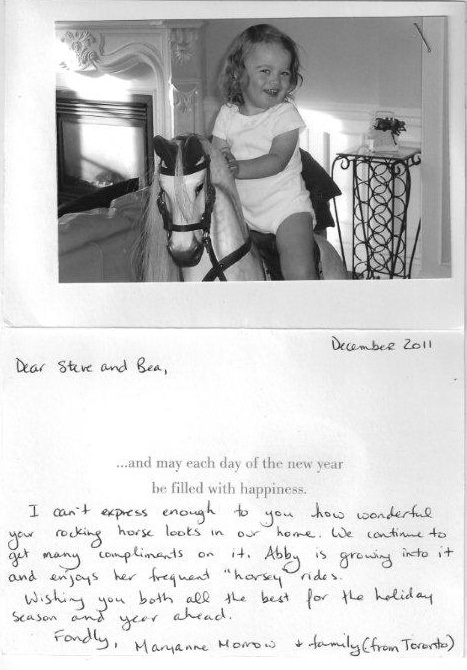 December 2011
Dear Steve and Bea,
...and may each day of the new year
be filled with happiness.
I can't express enough to you how wonderful
your rocking horse looks in our home. We continue to
get many compliments on it. Abby is growing into it
and enjoys her frequent "horsey" rides.
Wishing you both all the best for the holiday
season and year ahead.
Fondly, Maryanne Morrow + family (from Toronto)